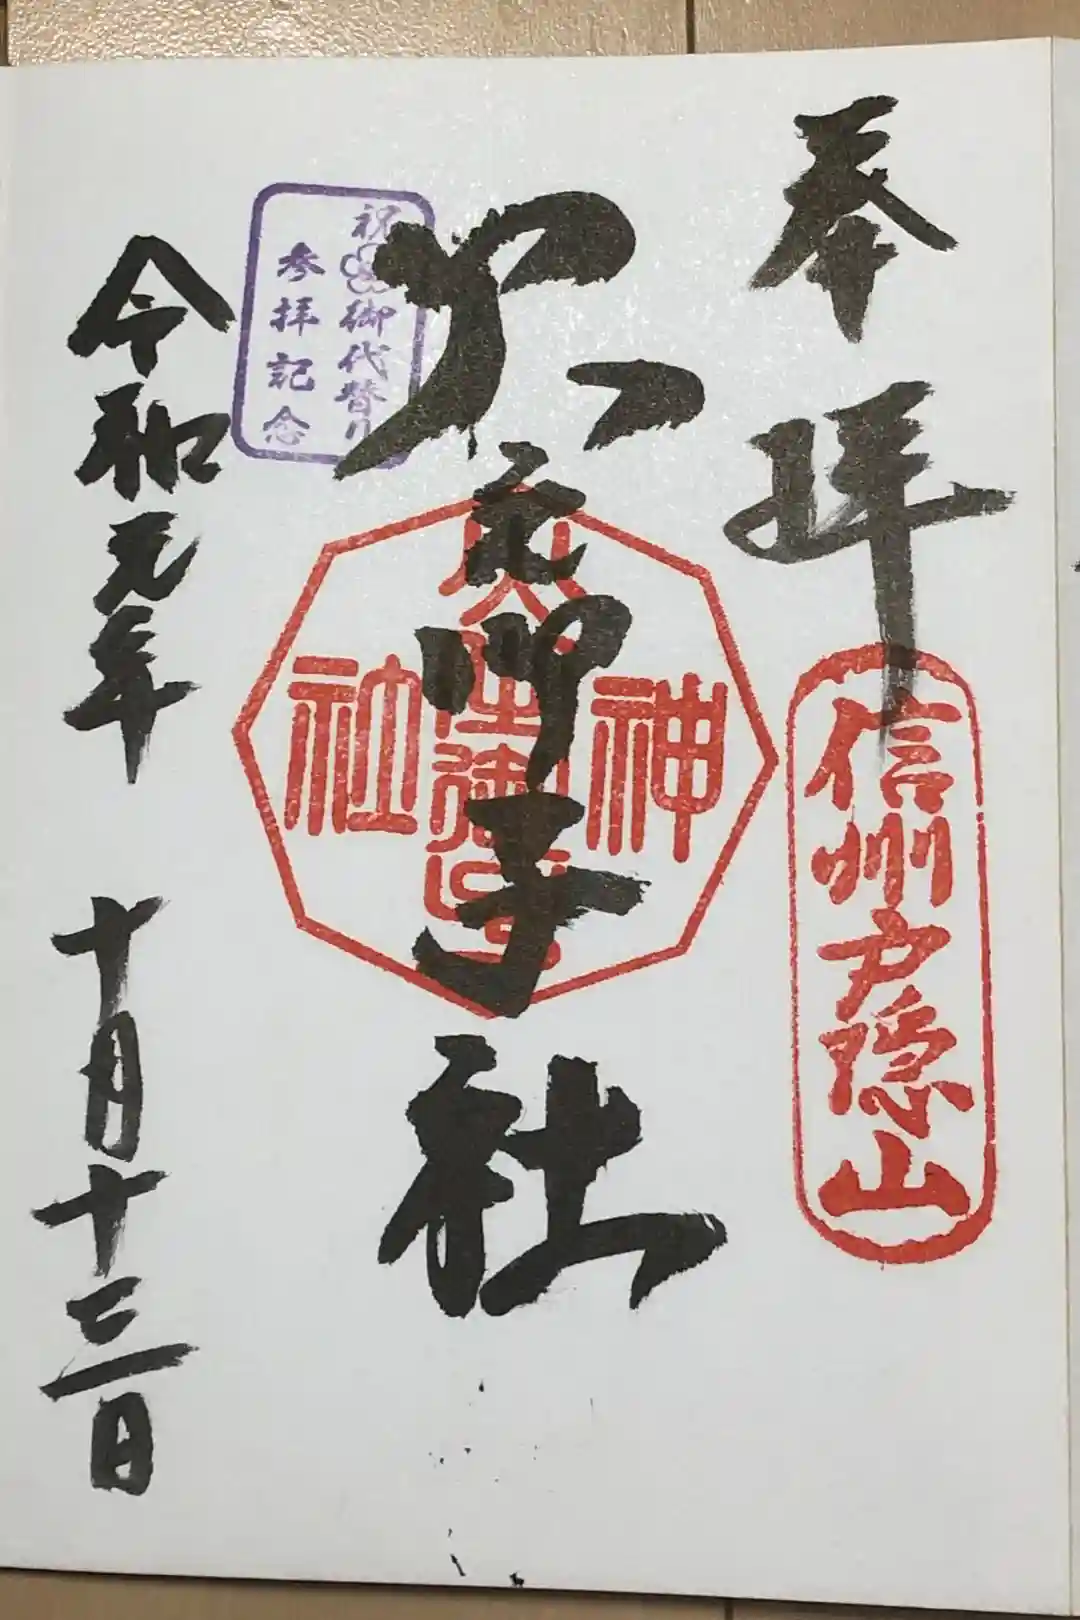 奉拝
信州戸隠山
火之御子社
神
社
祝 御代替り
参拝記念
令和元年 十月十三日